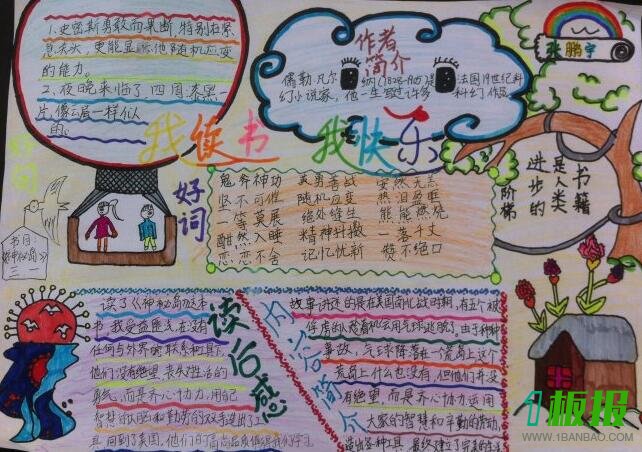 1.史密斯勇敢而果断,特别在紧
急关头,更能显示他随机应变
的能力。
2.夜晚来临了,四周漆黑一
片,像云后一样似
的。
作者
简介
儒勒·凡尔纳(1828-1905)是法国19世纪科
幻小说家,他一生写过许多科幻作品
张鹏宇
我读书 我快乐
好词
鬼斧神功 英勇善战 安然无恙
坚不可摧 随机应变 热泪盈眶
一筹莫展 绝处缝生 熊熊燃烧
酣然入睡 精神抖擞 一落千丈
恋恋不舍 记忆忧新 赞不绝口
书籍
是人类
进步的
阶梯
好句
书目:
《神秘岛》
三一
读后感
读了《神秘岛》这本
书,我受益匪浅,在没有
任何与外界的联系和工具下,
他们没有绝望,丧失生活的
勇气,而是齐心协力,用自己
智慧的头脑和勤劳的双手造出了工
具,回到了美国,他们的高尚品质值得我们学习。
内容简介
故事讲述的是在美国南北战时期,有五个被
俘虏的人趁着机会用气球逃脱了,由于种种
事故,气球降落在一个荒岛上,这个
荒岛上什么也没有,但他们并没
有绝望,而是齐心协力运用
大家的智慧和辛勤的劳动,
造出各种工具,最终建立了完美的生活
1板报
WWW.1BANBAO.COM